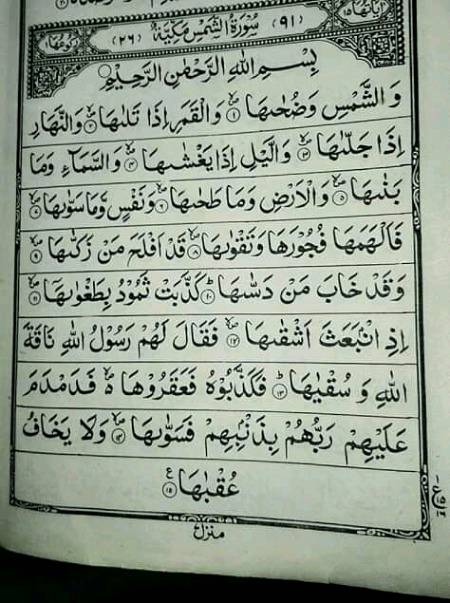 اٰیَاتُهَا ۱۵ (۹۱) سُوْرَةُ الشَّمْسِ مَكِّيَّةٌ (۲۶) رُكُوْعُهَا ۱
بِسْمِ اللّٰهِ الرَّحْمٰنِ الرَّحِيْمِ
وَالشَّمْسِ وَضُحٰىهَا ۙ۱ وَالْقَمَرِ اِذَا تَلٰىهَا ۙ۲ وَالنَّهَارِ
اِذَا جَلّٰىهَا ۙ۳ وَالَّيْلِ اِذَا يَغْشٰىهَا ۙ۴ وَالسَّمَآءِ وَمَا
بَنٰىهَا ۙ۵ وَالْاَرْضِ وَمَا طَحٰىهَا ۙ۶ وَنَفْسٍ وَّمَا سَوّٰىهَا ۙ۷
فَاَلْهَمَهَا فُجُوْرَهَا وَتَقْوٰىهَا ۙ۸ قَدْ اَفْلَحَ مَنْ زَكّٰىهَا ۙ۹
وَقَدْ خَابَ مَنْ دَسّٰىهَا ؕ۱۰ كَذَّبَتْ ثَمُوْدُ بِطَغْوٰىهَا ۙ۱۱
اِذِ انْۢبَعَثَ اَشْقٰىهَا ۙ۱۲ فَقَالَ لَهُمْ رَسُوْلُ اللّٰهِ نَاقَةَ
اللّٰهِ وَسُقْيٰهَا ؕ۱۳ فَكَذَّبُوْهُ فَعَقَرُوْهَا ۙ۬ فَدَمْدَمَ
عَلَيْهِمْ رَبُّهُمْ بِذَنْۢبِهِمْ فَسَوّٰىهَا ۙ۱۴ وَلَا يَخَافُ
عُقْبٰهَا ۧ۱۵
منزل